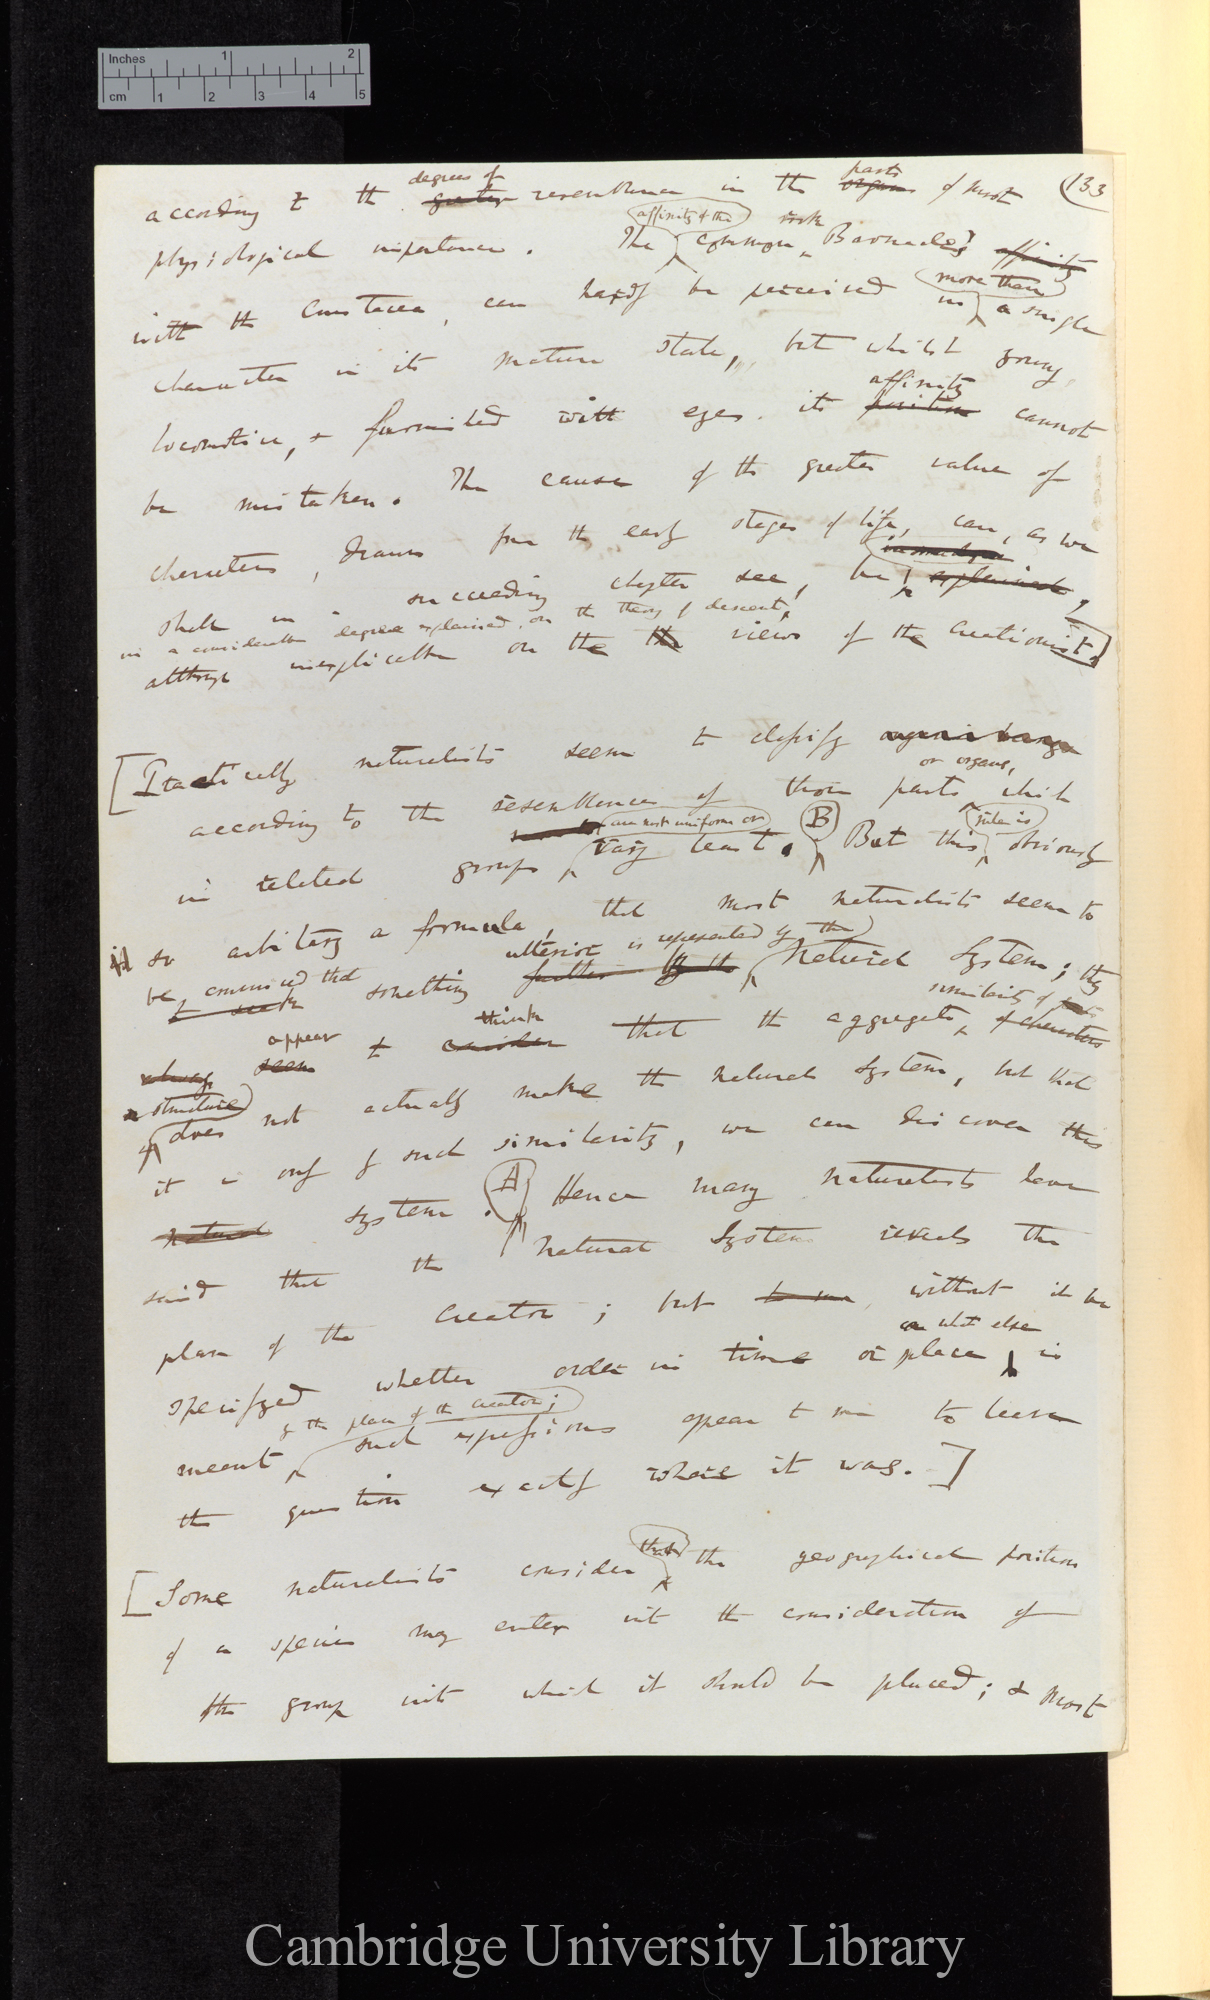 Inches 1 2
cm 1 2 3 4 5
133
degrees of parts
according to the greater resemblance in the organs of most
affinity of the rock
physiological importance. The common Barnacles affinity
more than
with the Crustacea, can hardly be perceived in a single
character in its mature state, but whilst young,
affinity
locomotive, & furnished with eyes, its position cannot
be mistaken. The cause of the greater value of
characters, drawn from the early stages of life, can, as we
shall in a succeeding chapter see, be explained,
in a considerable degree explained, on the theory of descent,
although inexplicable on the the views of the creationist.
[Practically naturalists seem to classify
or organs,
according to the resemblance of those parts which
are most uniform or B rule is
in related groups vary least. But this obviously
so arbitrary a formula, that most naturalists seem to
ulterior is represented by the
be convinced that something further by the Natural System; they
to seek
appear think similarity of
always seem to consider that the aggregate of characters
structure
does not actually make the natural system, but that
it is only by such similarity, we can discover this
natural system. A Hence many naturalists have
said that the natural System reveals the
plan of the Creator; but without it be
or what else
specifyed whether order in time or place, is
of the plan of the Creator;
meant such expressions appear to me to leave
the question exactly where it was.]
that
[Some naturalists consider the geographical position
of a species may enter into the consideration of
the group into which it should be placed; & most
Cambridge University Library